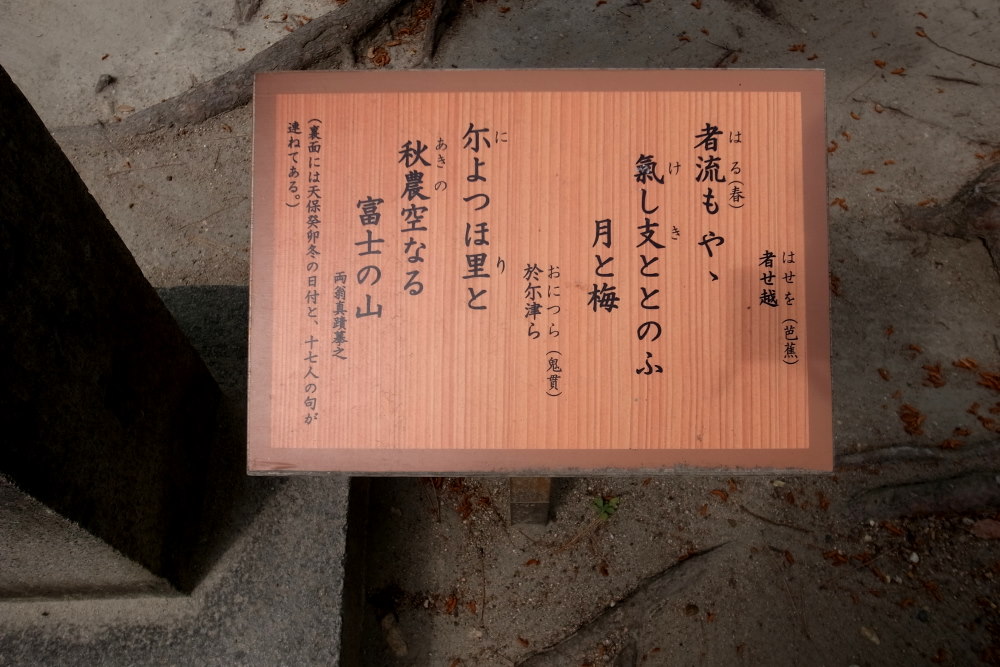 はせを（芭蕉）
者せ越
はる（春）
者流もやゝ
けき
氣し支ととのふ
月と梅
おにつら（鬼貫）
於尓津ら
にり
尓よつほ里と
あきの
秋農空なる
富士の山
両翁真蹟摹之
（裏面には天保癸卯冬の日付と、十七人の句が
連ねてある。）